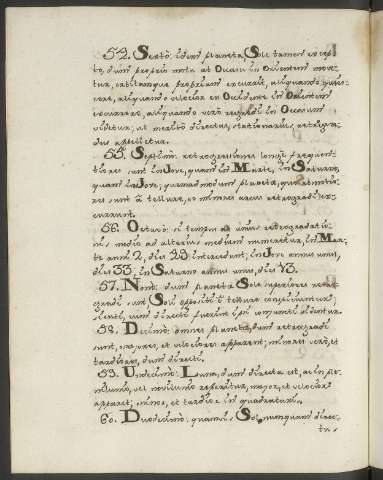 54. Sextò: idem planeta, Sole tamen excep-
to, dum proprio motu ab Occasu in Orientem move-
tur, orbitamque propriam excurrit, aliquando quies-
cere, aliquando velocior ex Occidente in Orientem
excurrere, aliquando verò regredi in Occasum
videtur; et meritò directus, stationarius, retrogra-
dus appelletur.
55. Septimò: retrogressiones longè frequen-
tiores sunt in Jove, quam in Marte, in Saturno,
quam in Jove, quemadmodum planetæ, qui remotio-
res sunt à tellure, eo minores arcus retrogradi ex-
currunt.
56. Octavò: si tempus ab unius retrogradatio-
nis medio ad alterius medium numeretur, in Mar-
te anni 2, dies 49 intercedunt; in Jove annus unus,
dies 33; in Saturno annus unus, dies 13.
57. Nonò: dum planetæ Sole superiores retro-
gradi sunt Soli oppositi è tellure conspiciuntur;
sicuti, dum directi fuerint ipsi conjuncti videntur.
58. Decimò: omnes planetæ, dum retrogradi
sunt, majores, et velociores apparent; minores verò, et
tardiores, dum directi.
59. Undecimò: Luna, dum directa est, ac in ple-
nilunio, vel novilunio reperitur, major, et velocior
apparet; minor, et tardior in quadraturis.
60. Duodecimò: quamvis Sol nunquam direc-
tus